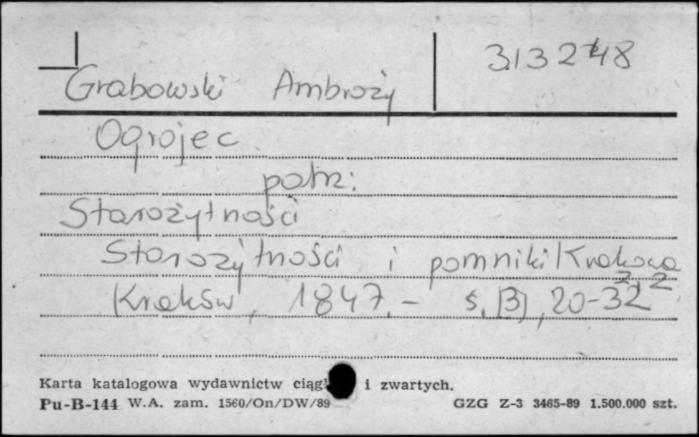 Grabowski Ambroży
Ogrojec
patrz:
Starożytności
Starożytności i pomniki Krakowa
Kraków, 1847.- s. [3], 20-32
Karta katalogowa wydawnictw i zwartych.
Pu-B-144 W.A. zam. 1560/On/DW/89 GZG Z-3 3465-89 1.500.000 szt.